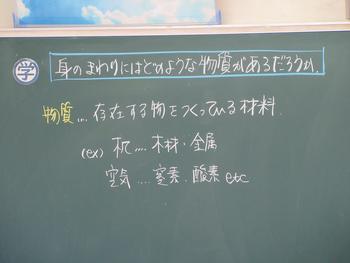 学 身のまわりにはどのような物質があるだろうか。
物質… 存在する物をつくっている材料.
(ex) 机…. 木材・金属
空気…. 窒素. 酸素 etc